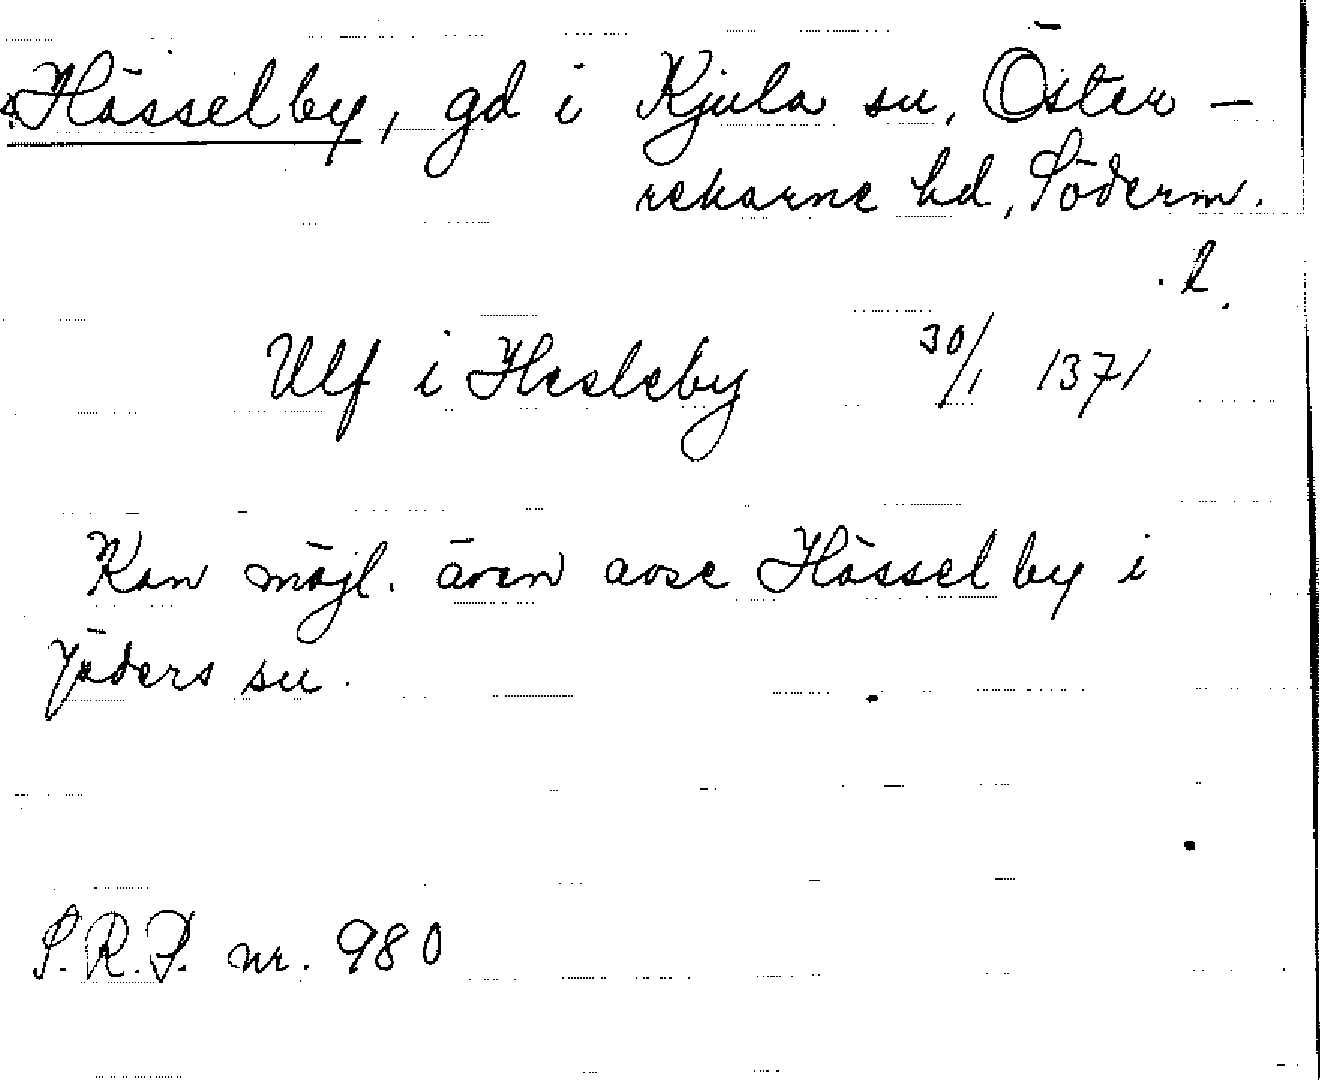 Hässelby, gd i Kjula sn, Öster-
rekarne hd, Söderm.
l.
Ulf i Hesleby 30/1 1371
Kan möjl. även avse Hässelby i
Jäders sn.
S.R.P. nr. 980